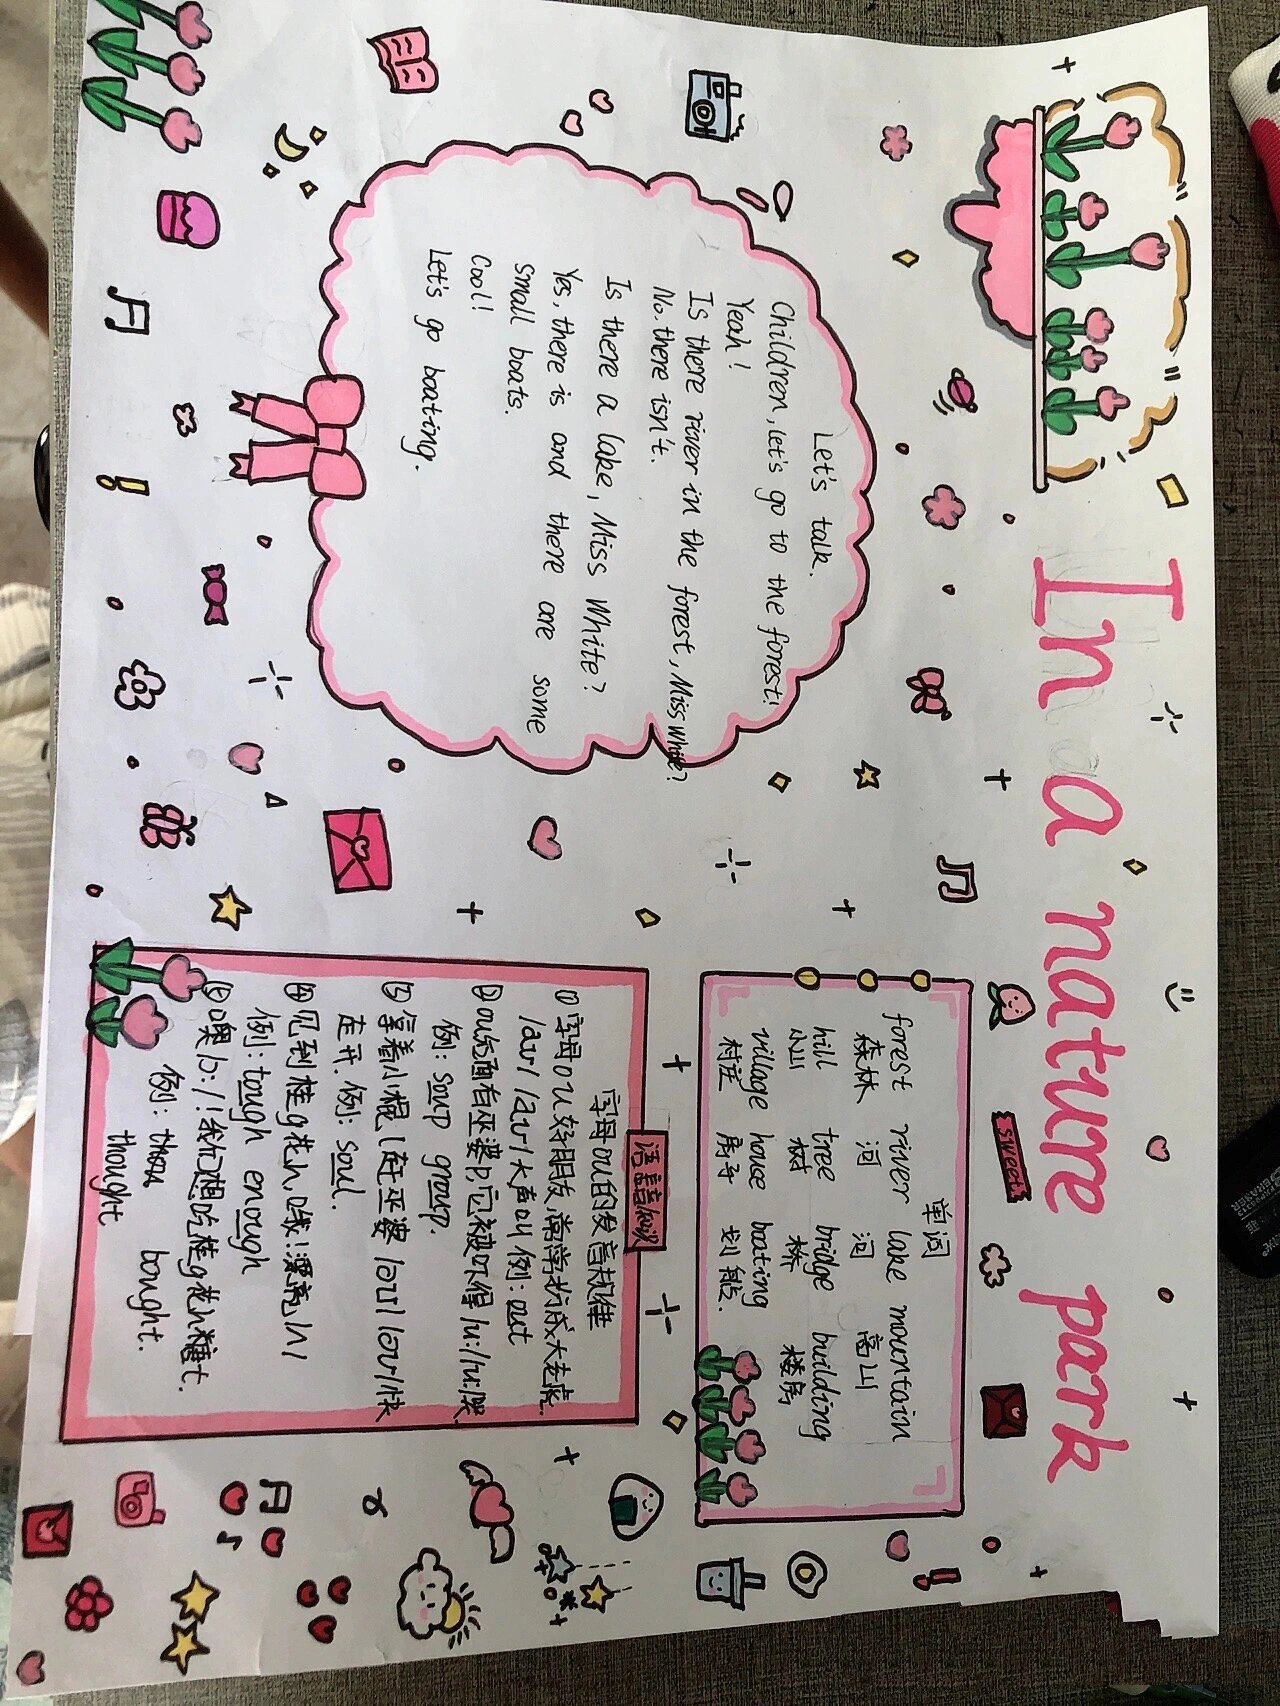 In a nature park
Let's talk.
Children, let's go to the forest!
Yeah!
Is there river in the forest, Miss White?
No. there isn't.
Is there a lake, Miss White?
Yes, there is and there are some
small boats.
Cool!
Let's go boating.
sweet
单词
forest river lake mountain
森林 河 河 高山
hill tree bridge building
小山 树 桥 楼房
village house boating
村庄 房子 划船.
语言知识
字母ou的发音规律
①字母ou好朋友,常常扮成大老虎.
/aʊ/ /aʊ/大声叫 例: out
②ou后面有巫婆p,它被吓得/u:/ /u:/哭
例: soup group.
③拿着小棍l赶巫婆 /əʊ/ /əʊ/快
走开. 例: soul.
④见到桂g花h,哦!漂亮/ʌ/
例: tough enough
⑤噢/ɔ:/!我们想吃桂g花h糖t.
例: bought.
thought